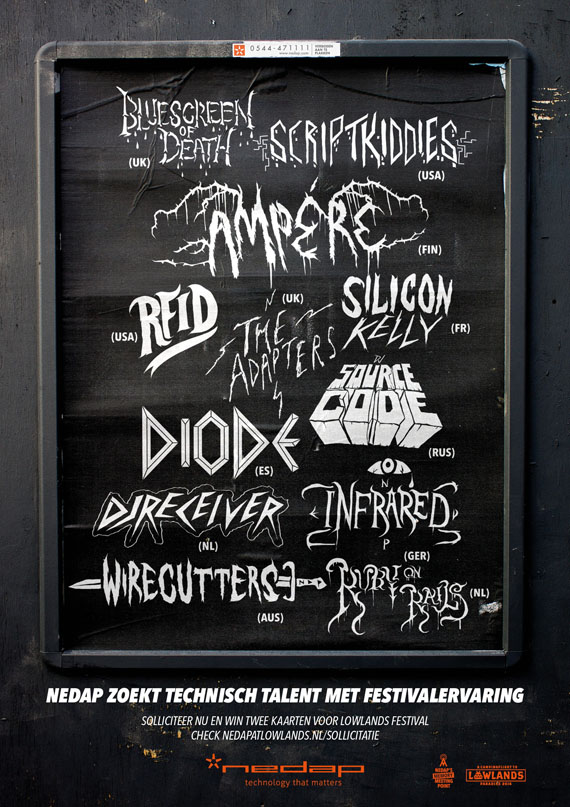 0544-471111
www.nedap.com
BLUESCREEN
OF
DEATH
(UK)
SCRIPTKIDDIES
(USA)
AMPÉRE
(FIN)
RFID
(USA)
(UK)
THE
ADAPTERS
SILICON
KELLY
(FR)
DJ
SOURCE
CODE
(RUS)
DIODE
(ES)
DJRECEIVER
(NL)
INFRARED
(GER)
WIRECUTTERS
(AUS)
RUBY ON
RAILS
(NL)
NEDAP ZOEKT TECHNISCH TALENT MET FESTIVALERVARING
SOLLICITEER NU EN WIN TWEE KAARTEN VOOR LOWLANDS FESTIVAL
CHECK NEDAPATLOWLANDS.NL/SOLLICITATIE
nedap
technology that matters
NEDAP'S
MEETING
POINT
A CAMPINGFLIGHT TO
LOWLANDS
PARADISE 2010